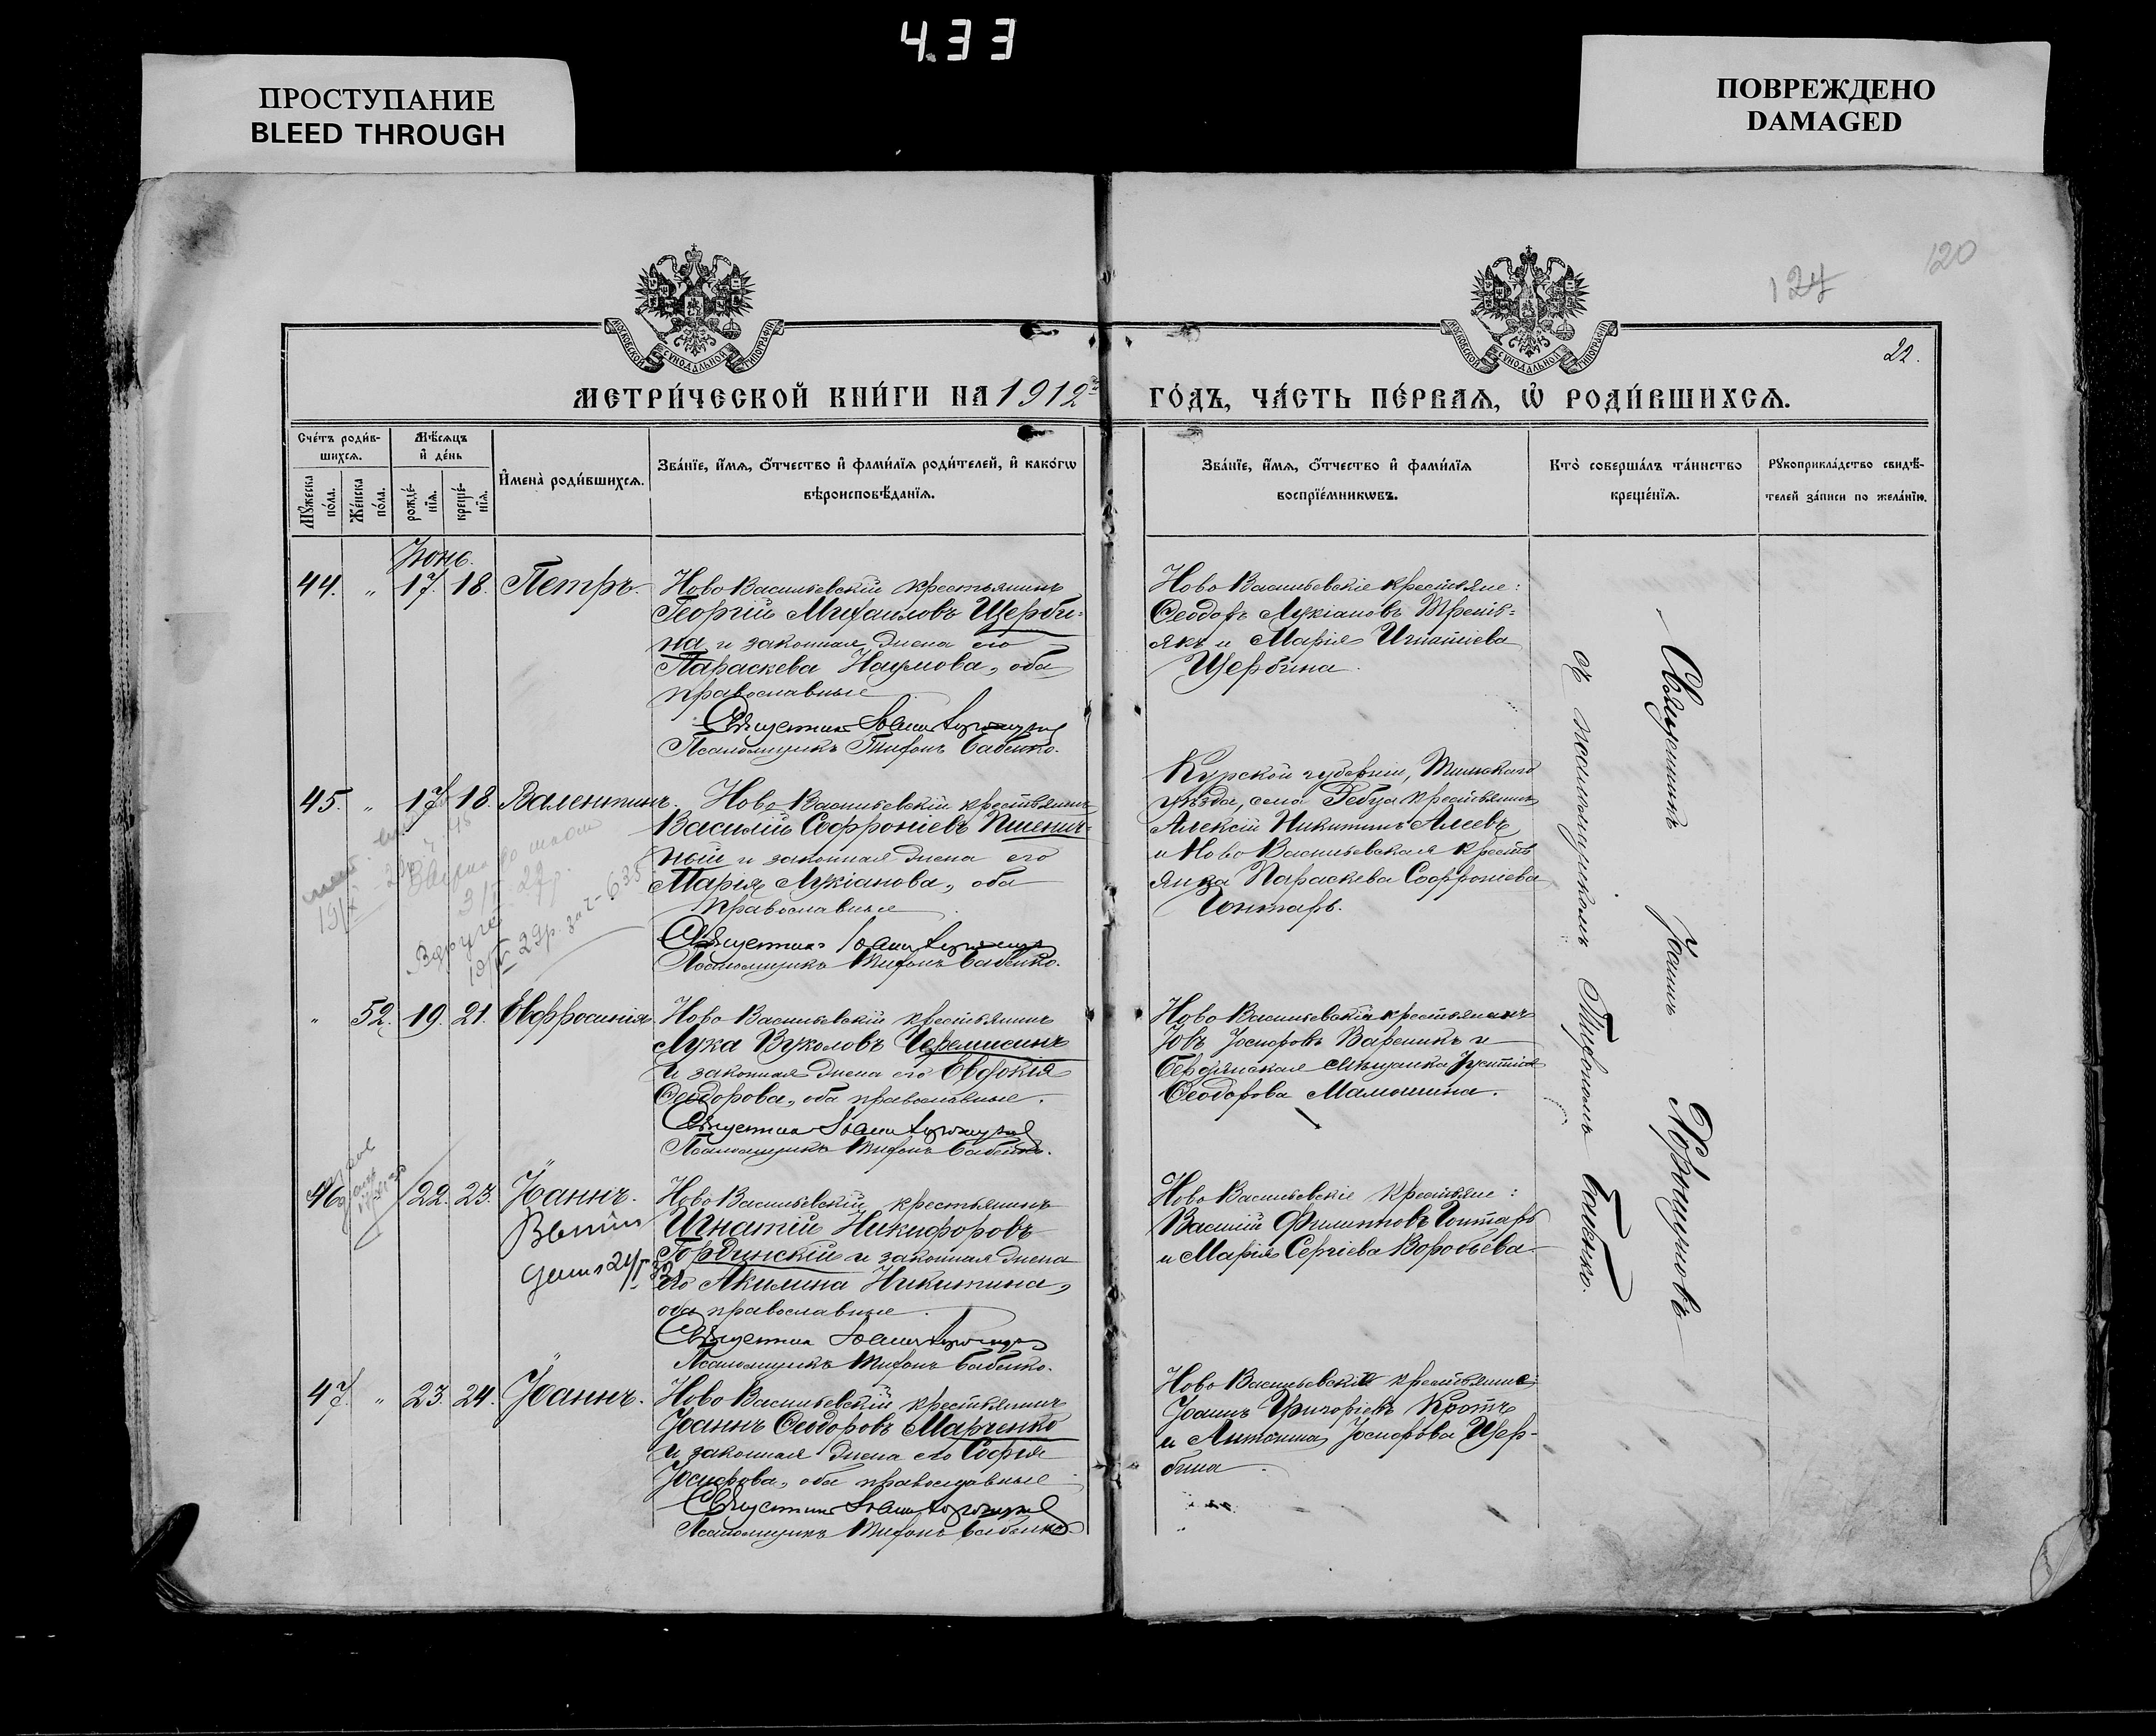 4.33
ПРОСТУПАНИЕ
BLEED THROUGH
ПОВРЕЖДЕНО
DAMAGED
120
124
22.
МОСКОВСКОЙ СѴНОДАЛЬНОЙ ТИПОГРАФІИ
МОСКОВСКОЙ СѴНОДАЛЬНОЙ ТИПОГРАФІИ
МЕТРИ́ЧЕСКОЙ КНИ́ГИ НА 1912й
ГО́ДЪ, ЧА́СТЬ ПЕ́РВАѦ, Ѡ҆ РОДИ́ВШИХСѦ.
Сче́тъ роди́в-
шихсѧ.
Мѣ́сѧцъ
и҆ де́нь
Мꙋ́жеска
по́ла.
Же́нска
по́ла.
рожде́-
нїѧ.
креще́-
нїѧ.
И҆мена̀ роди́вшихсѧ.
Зва́нїе, и҆́мѧ, ѻ҆́тчество и҆ фами́лїѧ роди́телей, и҆ како́гѡ
вѣроисповѣ́данїѧ.
Зва́нїе, и҆́мѧ, ѻ҆́тчество и҆ фами́лїѧ
воспрїе́мникѡвъ.
Кто̀ соверша́лъ та́инство
креще́нїѧ.
Рꙋкоприкла́дство свидѣ́-
телей за́писи по жела́нїю.
Іюнь.
44. " 17. 18. Петръ.
Ново Васильевскій крестьянинъ
Георгій Михаиловъ Щерби-
на и законная жена его
Параскева Наумова, оба
православные
Священникъ Іоаннъ
Псаломщикъ Тихонъ Бабенко.
Ново Васильевскіе крестьяне:
Ѳеодоръ Лукіановъ Треть-
якъ и Марія Игнатіева
Щербина.
45. " 17. 18. Валентинъ.
Ново Васильевскій крестьянинъ
Василій Софроніевъ Пшенич-
ный и законная жена его
Марія Лукіанова, оба
православные
Священникъ Іоаннъ
Псаломщикъ Тихонъ Бабенко.
Курской губерніи, Тимскаго
уѣзда, села крестьянинъ
Алексій Никитинъ Алеевъ
и Ново Васильевская кресть
янка Параскева Софроніева
Гонтарь.
" 52. 19. 21. Евфросинія.
Ново Васильевскій крестьянинъ
Лука Вуколовъ Черемисинъ
и законная жена его Евдокія
Ѳеодорова, оба православные.
Священникъ Іоаннъ
Псаломщикъ Тихонъ Бабенко.
Ново Васильевскій крестьянинъ
Іовъ Іосифовъ Вареникъ и
Бердянская мѣщанка Іустинія
Ѳеодорова Мамошина.
46. 22. 23. Іоаннъ.
Ново Васильевскій крестьянинъ
Игнатій Никифоровъ
Гординскій и законная жена
его Акилина Никитина,
оба православные.
Священникъ Іоаннъ
Псаломщикъ Тихонъ Бабенко.
Ново Васильевскіе крестьяне:
Василій Филипповъ Гонтарь
и Марія Сергіева Воробьева
47. " 23. 24. Іоаннъ.
Ново Васильевскій крестьянинъ
Іоаннъ Ѳеодоровъ Марченко
и законная жена его Софія
Іосифова, оба православные
Священникъ Іоаннъ
Псаломщикъ Тихонъ Бабенко
Ново Васильевскіе крестьяне:
Іоаннъ Григорьевъ Кротъ
и Антонина Іосифова Щер-
бина
Священникъ Іоаннъ
съ псаломщикомъ Тихономъ Бабенко.